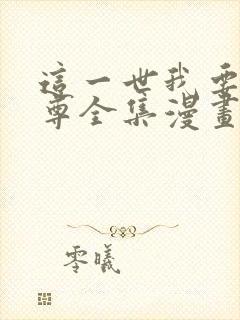 這一世我要
尊全集漫畫
零曦